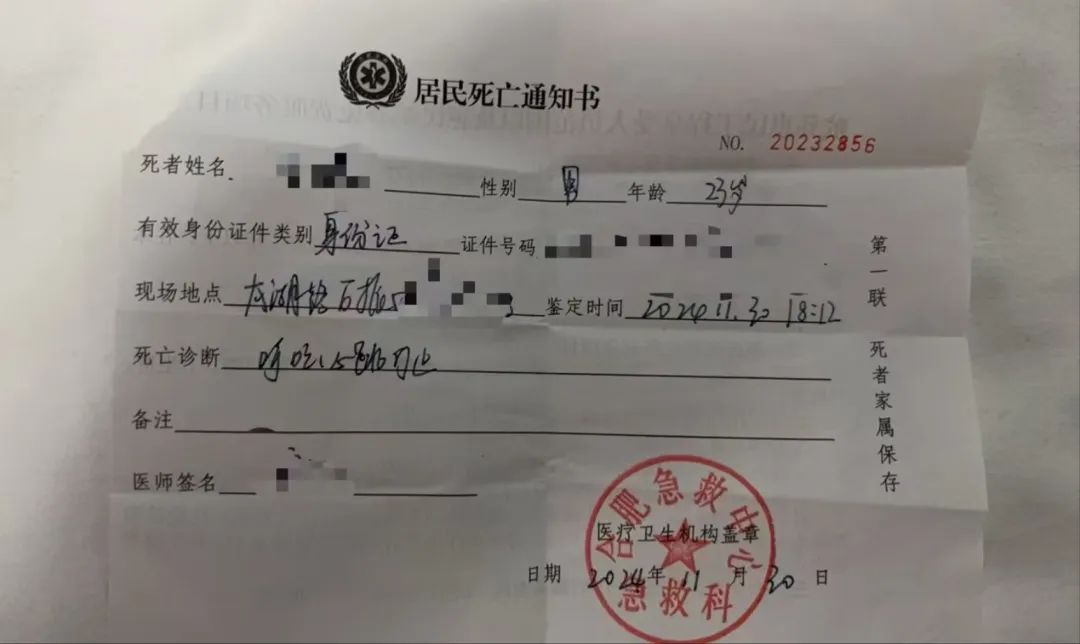 居民死亡通知书
NO. 20232856
死者姓名 性别 男 年龄 23岁
有效身份证件类别 身份证 证件号码
现场地点 鉴定时间 2024.11.30 18:12
死亡诊断 呼吸心跳停止
备注
医师签名
第一联 死者家属保存
合肥急救中心
医疗卫生机构盖章
日期 2024年11月30日
急救科